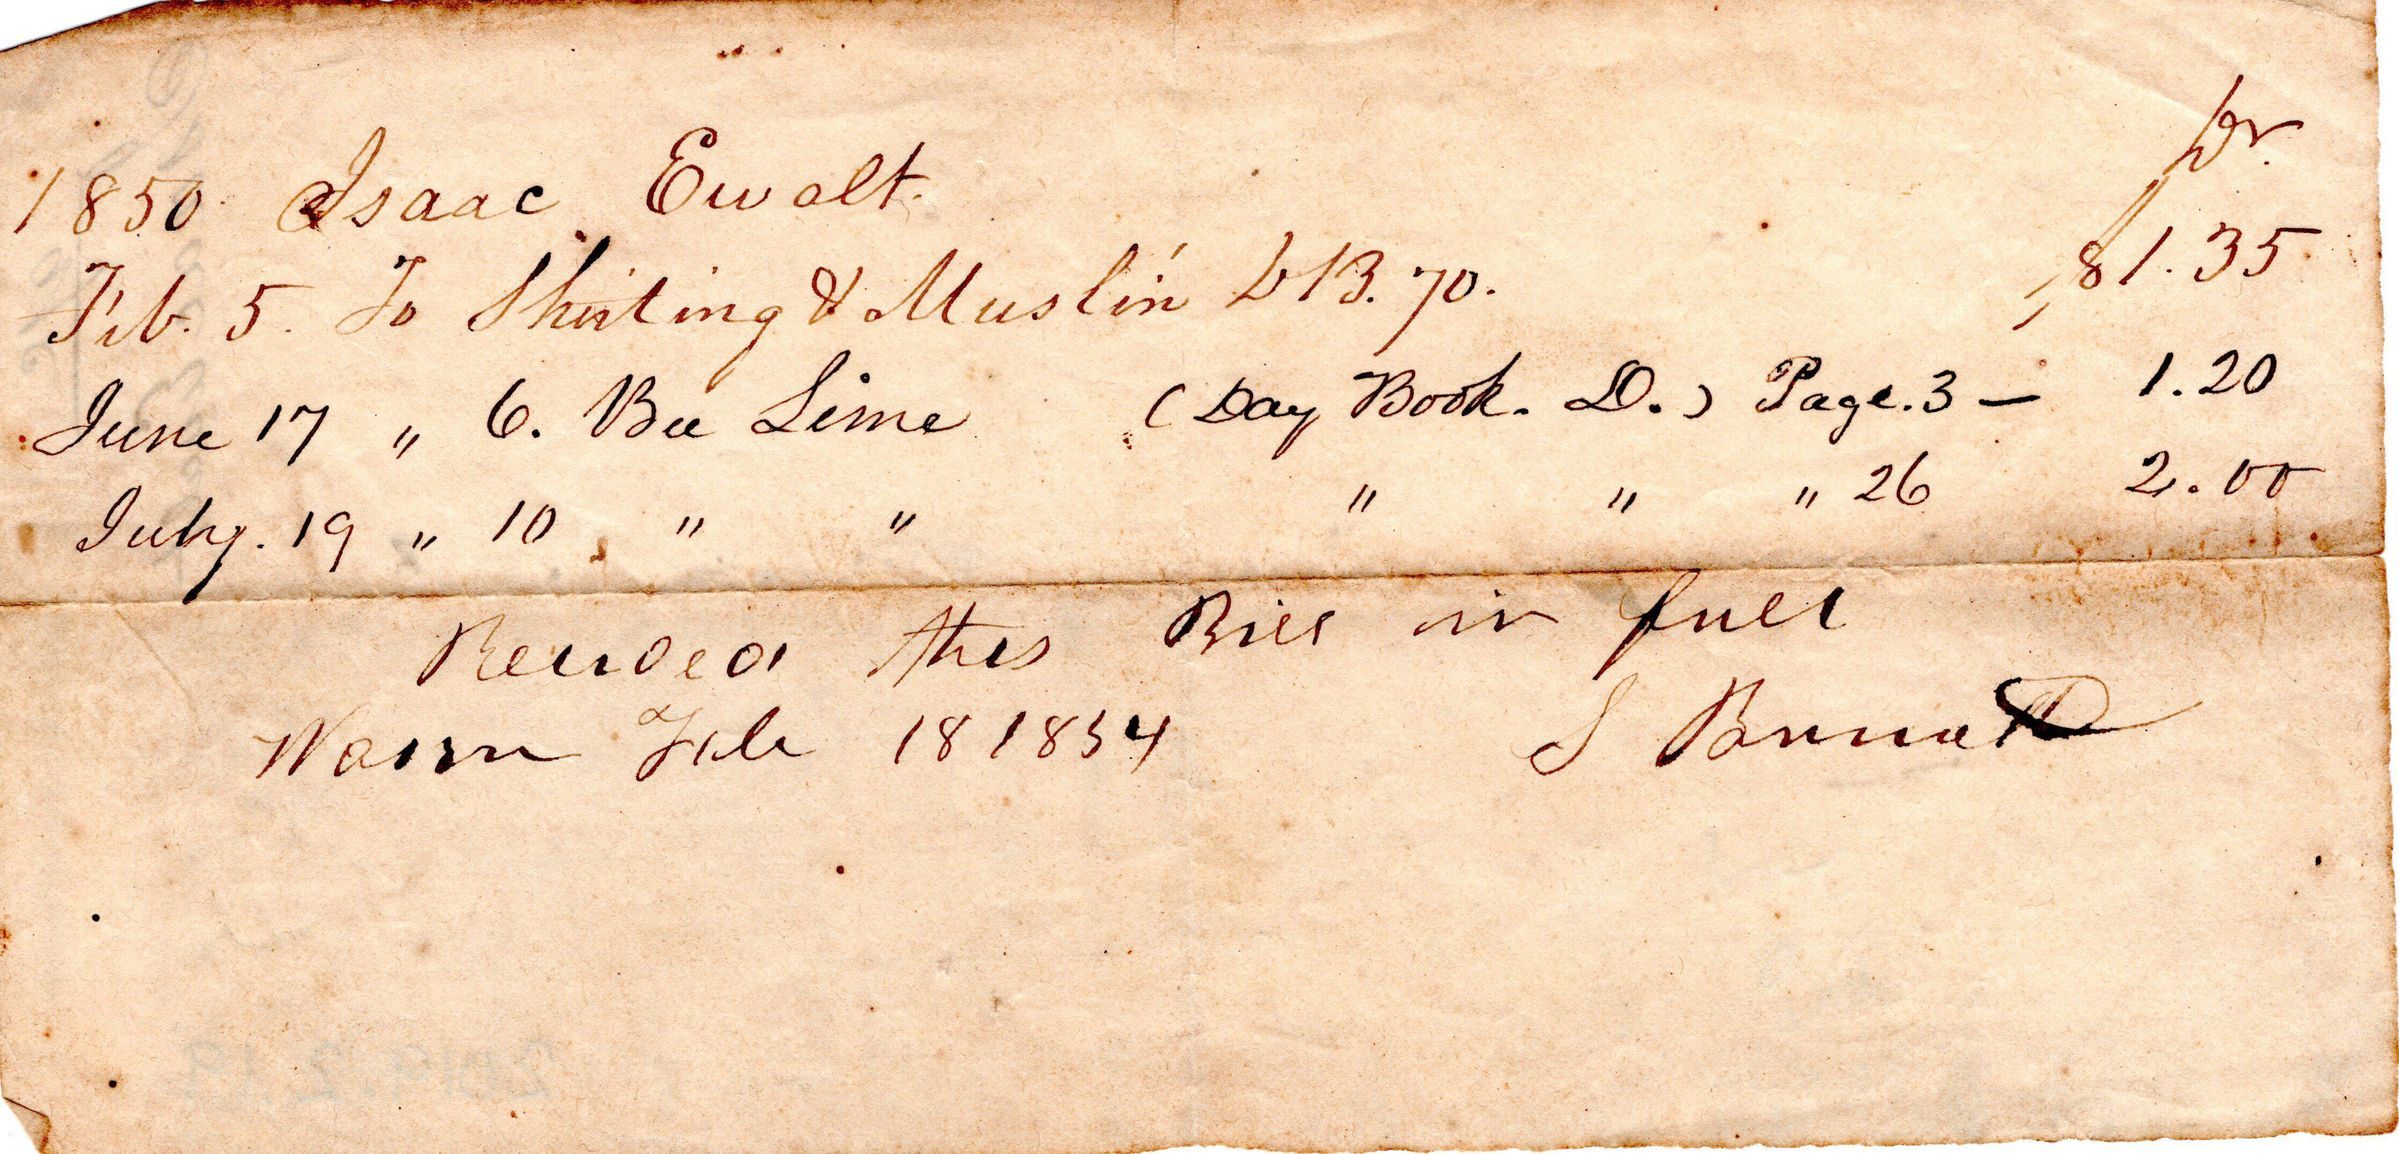 1850 Isaac Ewalt. Dr.
Feb. 5. To Shirting & Muslin b 13. 70. $1.35
June 17 " 6. Bu Lime (Day Book. D.) Page. 3 — 1.20
July. 19 " 10 " " " " " 26 2.00
Received this Bill in full
Warren Feb 18 1854 S